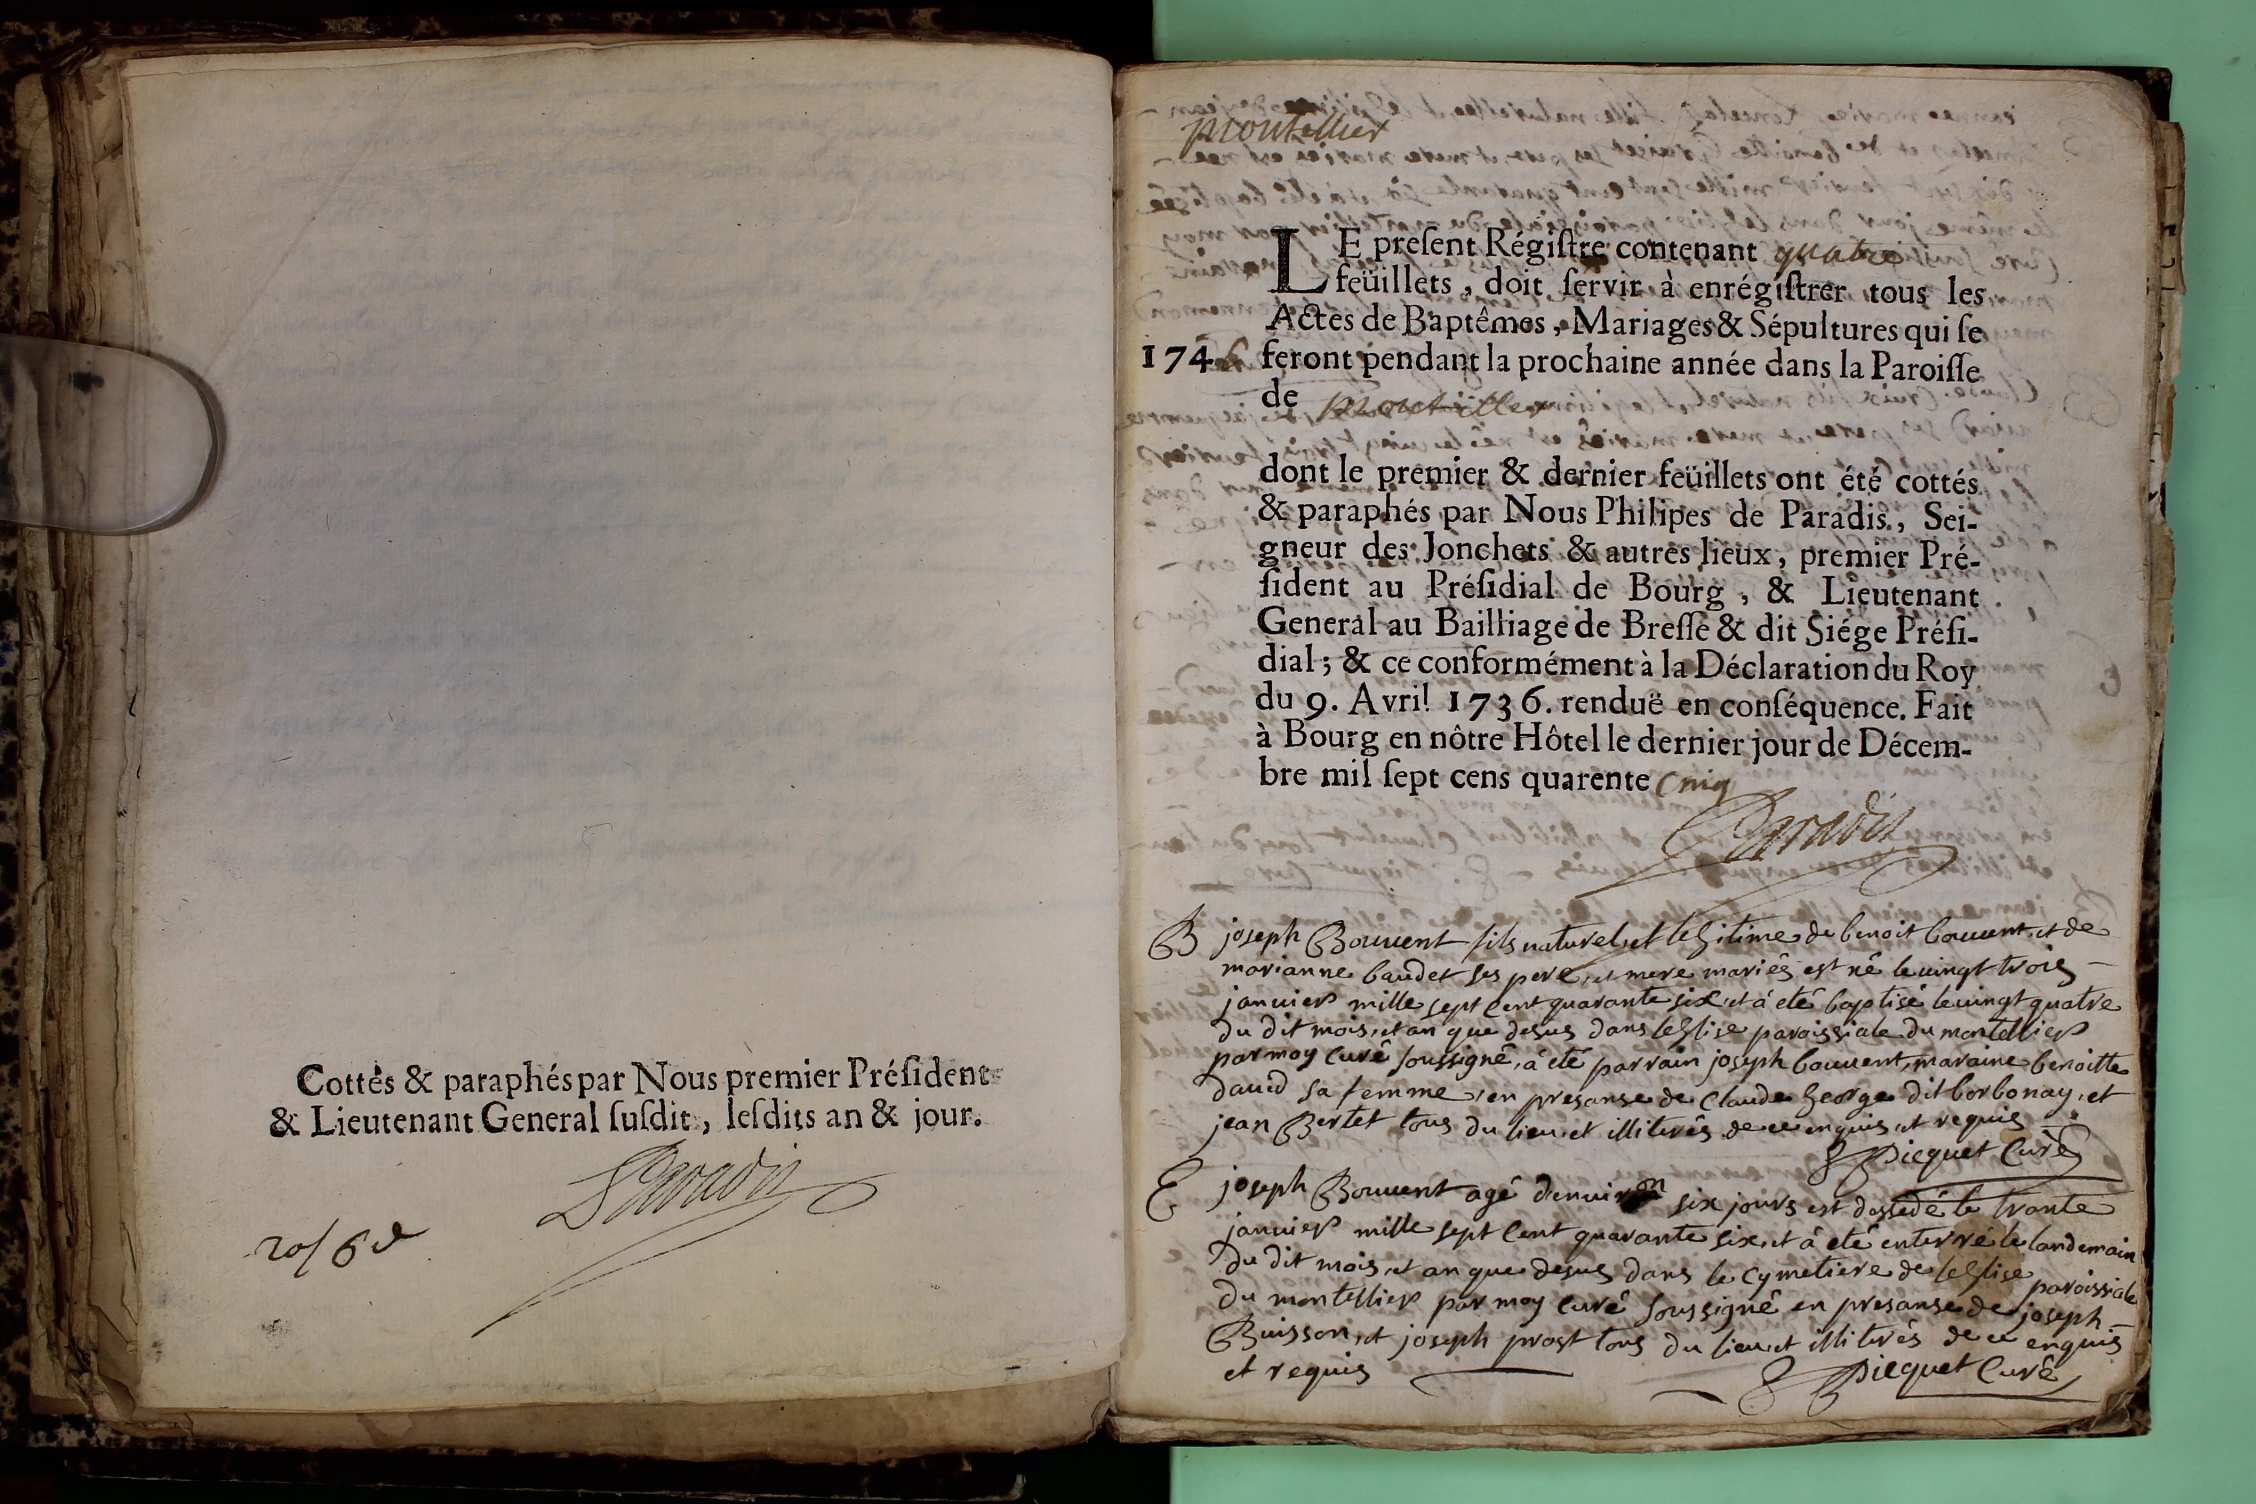 Cottés & paraphés par Nous premier Préſident
& Lieutenant General ſuſdit, leſdits an & jour.
Paradis
20ſ 6d
montellier
LE preſent Régiſtre contenant quatre
feüillets, doit ſervir à enrégiſtrer tous les
Actes de Baptêmes, Mariages & Sépultures qui ſe
1746 feront pendant la prochaine année dans la Paroiſſe
de montellier
dont le premier & dernier feüillets ont été cottés
& paraphés par Nous Philipes de Paradis, Sei-
gneur des Jonchets & autres lieux, premier Pré-
ſident au Préſidial de Bourg, & Lieutenant
General au Bailliage de Breſſe & dit Siége Préſi-
dial; & ce conformément à la Déclaration du Roy
du 9. Avril 1736. renduë en conſéquence. Fait
à Bourg en nôtre Hôtel le dernier jour de Décem-
bre mil ſept cens quarente cinq
Paradis
B joseph Bouvent fils naturel et legitime de benoit bouvent et de
marianne baudet ses pere et mere mariés est né le vingt trois
janvier mille sept cent quarante six et à eté baptisé le vingt quatre
du dit mois et an que desus dans leglise paroissiale du montellier
par moy curé soussigné, à eté parrain joseph bouvent, maraine benoitte
david sa femme, en presanse de claude george dit borbonay, et
jean Bertet tous du lieu et illiterés de ce enquis et requis
Picquet Curé
E joseph Bouvent agé denviron six jours est dessedé le trante
janvier mille sept cent quarante six et à eté enterré le landemain
du dit mois et an que desus dans le cymetiere de leglise paroissiale
du montellier par moy curé soussigné en presanse de joseph
Buisson et joseph prost tous du lieu et illiterés de ce enquis
et requis Picquet Curé